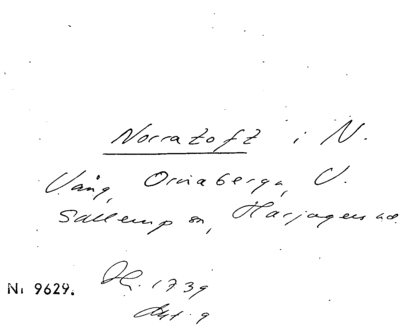 Norratoft i N.
Vång, Ormaberga, V.
Sallerup sn, Harjagers hd.
Nr 9629. Hi. 1739